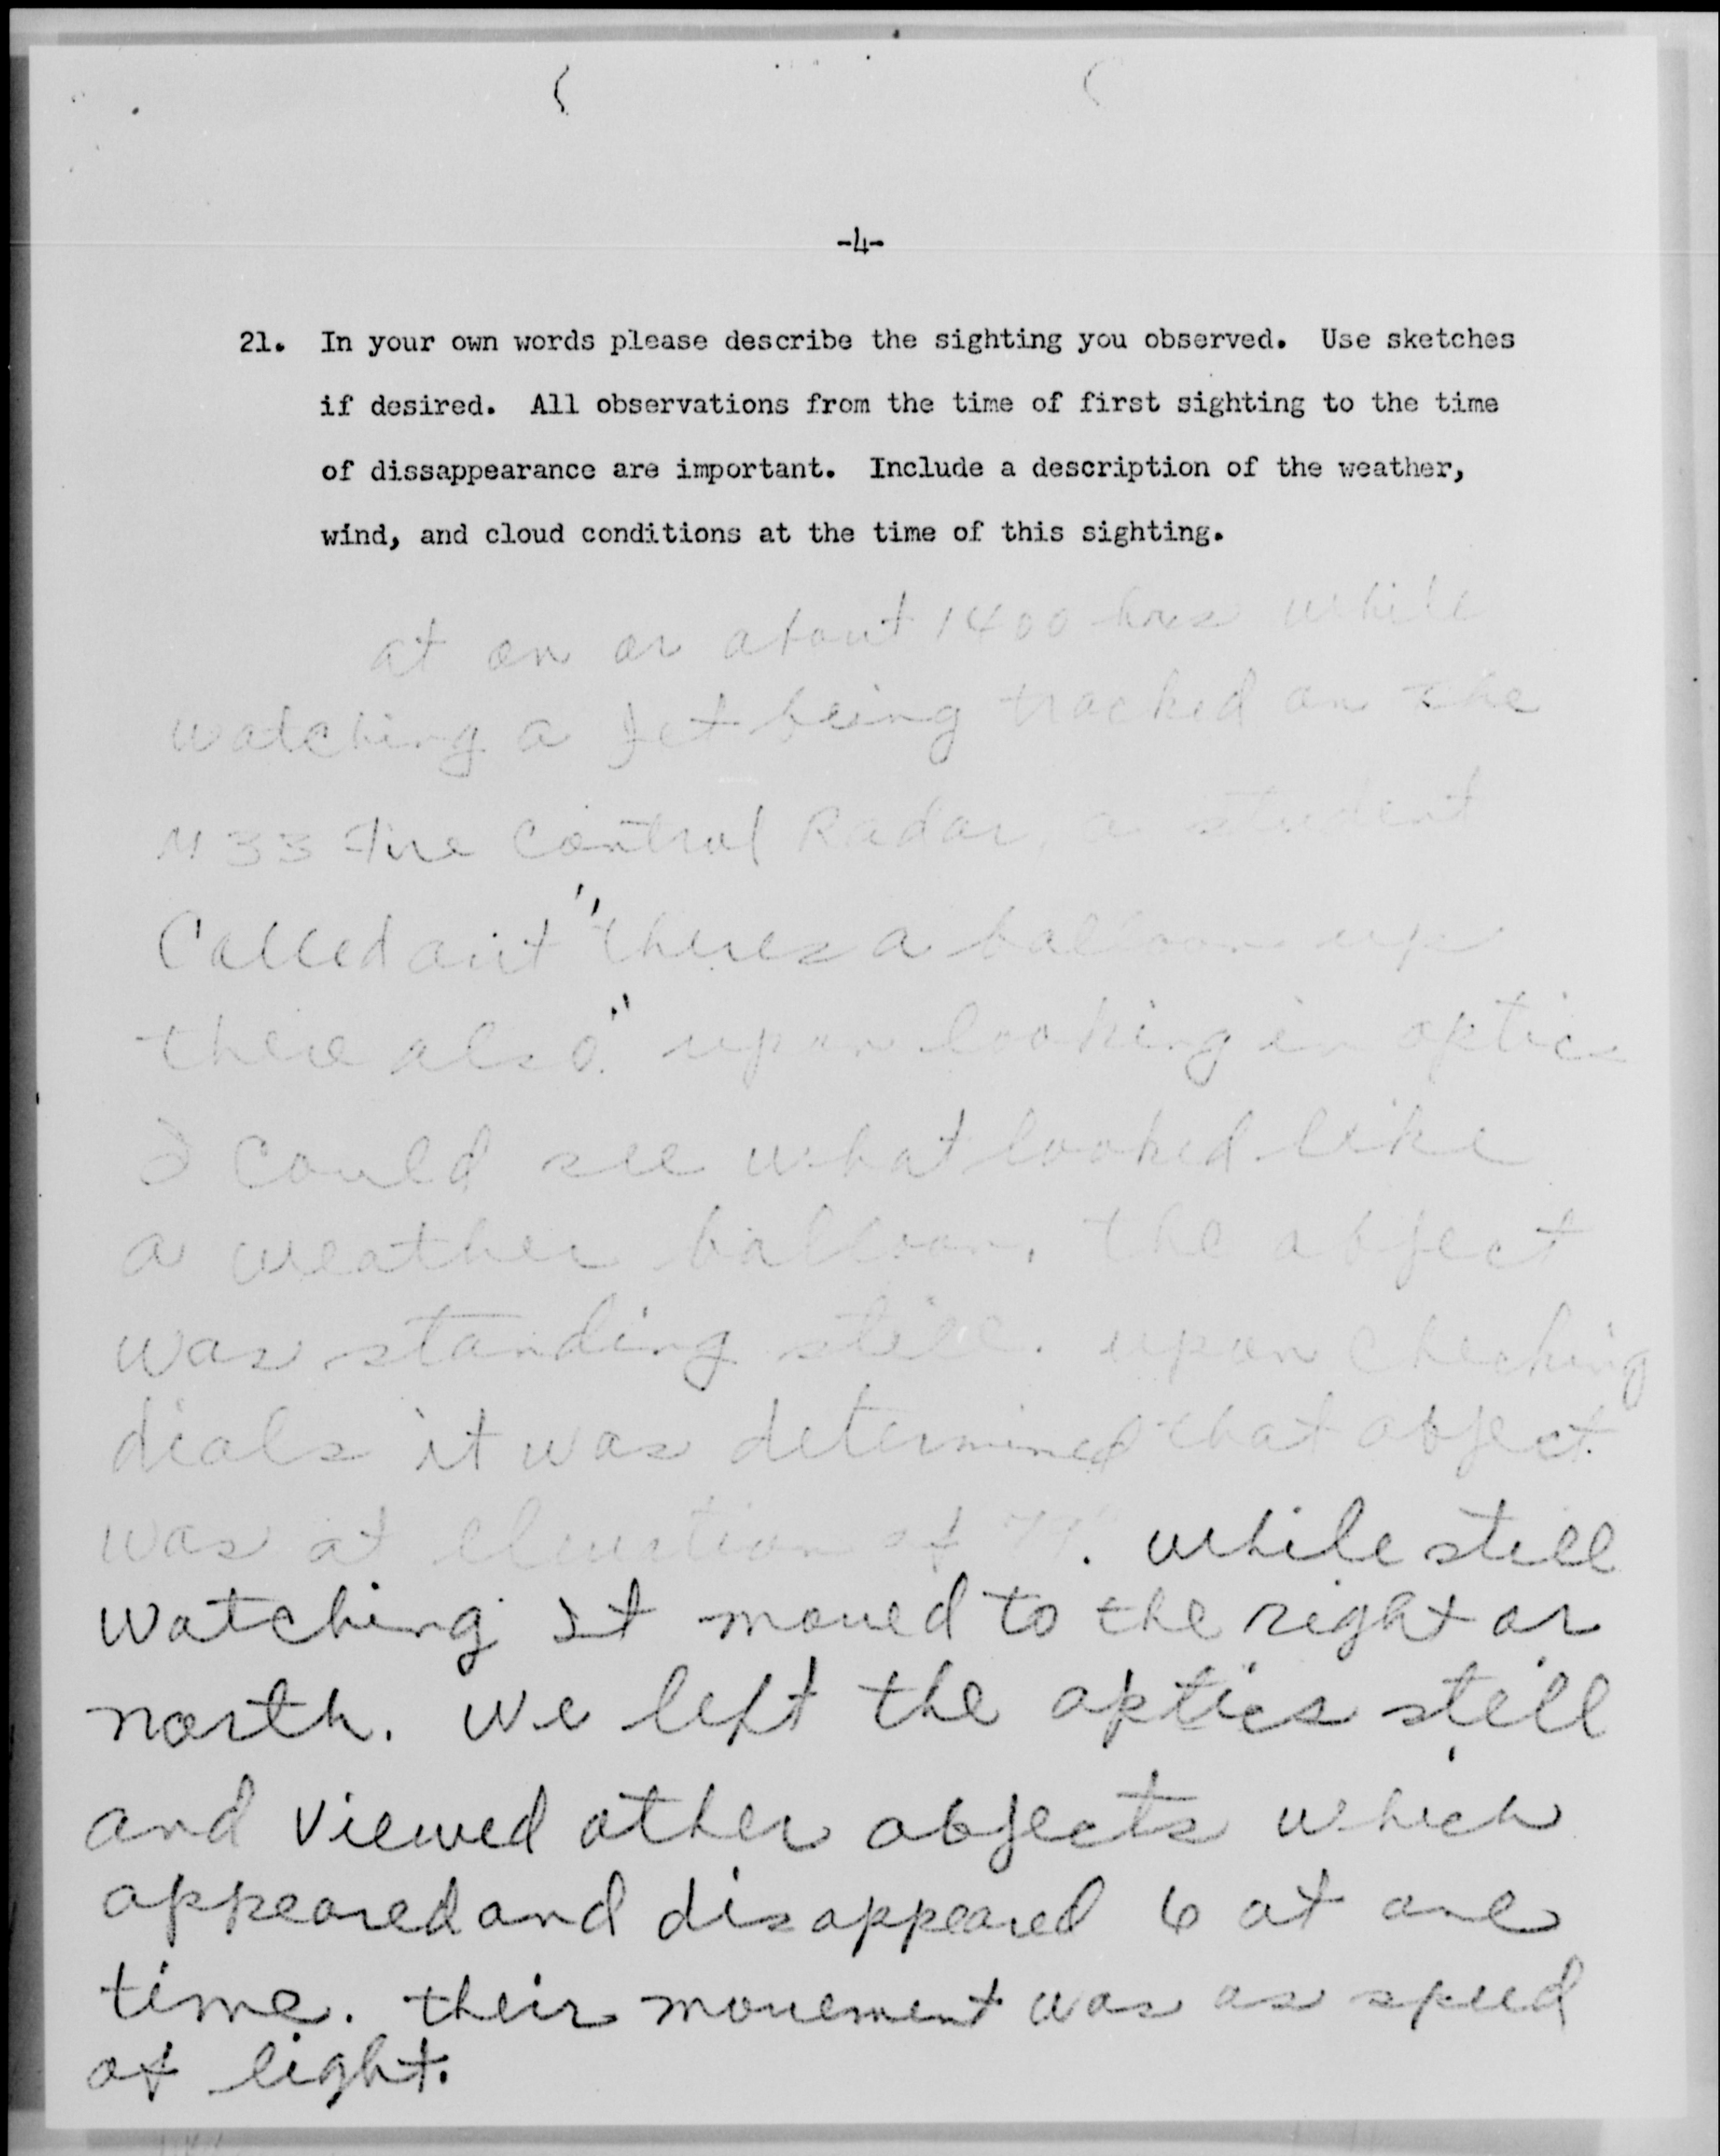 -4-
21. In your own words please describe the sighting you observed. Use sketches
if desired. All observations from the time of first sighting to the time
of dissappearance are important. Include a description of the weather,
wind, and cloud conditions at the time of this sighting.
at on or about 1400 hrs while
watching a Jet being tracked on the
M33 Fire Control Radar, a student
Called out "theres a balloon up
there also." upon looking in optics
I could see what looked like
a weather balloon, the object
was standing still. upon checking
dials it was determined that object
was at elevation of . while still
watching It moved to the right or
north. we left the optics still
and viewed other objects which
appeared and disappeared 6 at one
time. their movement was as speed
of light.